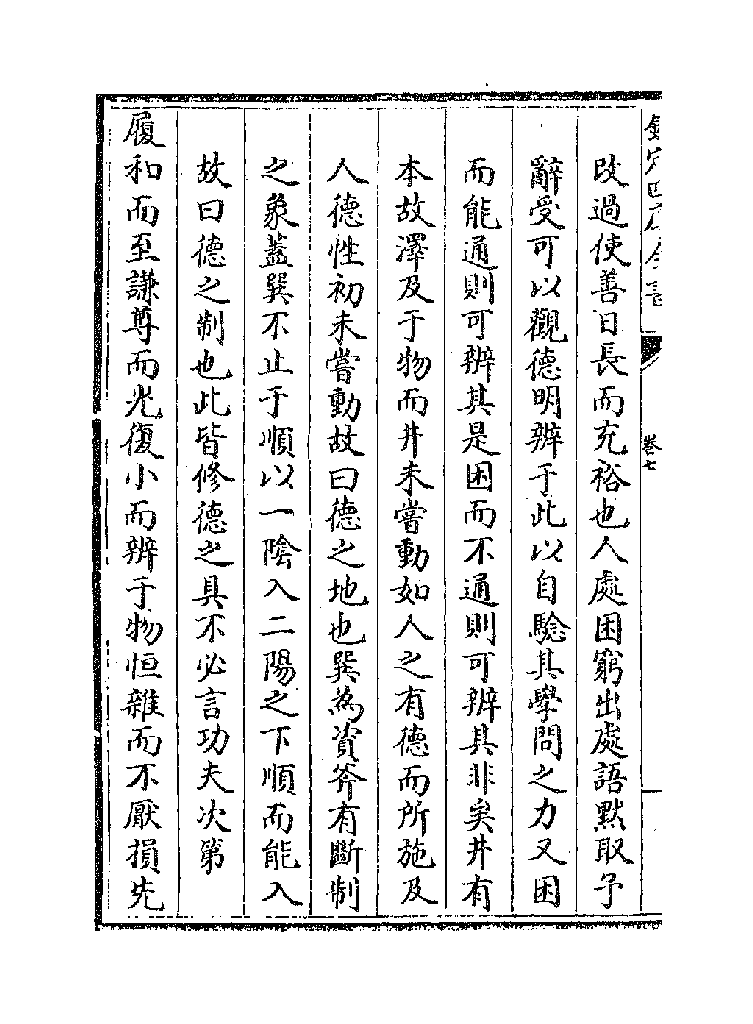 欽定四庫全書
卷七
改過使善日長而充裕也人處困窮出處語默取予
辭受可以觀德明辨于此以自驗其學問之力又困
而能通則可辨其是困而不通則可辨其非矣井有
本故澤及于物而井未嘗動如人之有德而所施及
人德性初未嘗動故曰德之地也巽為資斧有斷制
之象蓋巽不止于順以一陰入二陽之下順而能入
故曰德之制也此皆修德之具不必言功夫次第
履和而至謙尊而光復小而辨于物恒雜而不厭損先